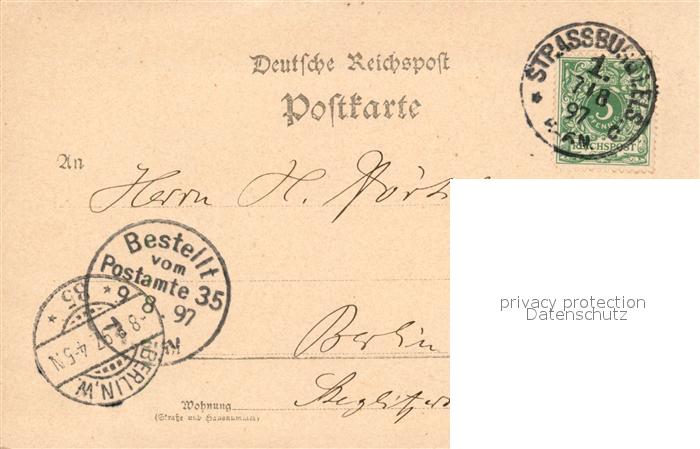 Deutsche Reichspost
Postkarte
STRASSBURG
1.
7/8
97
5
REICHSPOST
An
Herrn H.
Bestellt
vom
Postamte 35
9. 8. 97
BERLIN, W.
35
4-5 N
Berlin
Wohnung
(Straße und Hausnummer)
privacy protection
Datenschutz